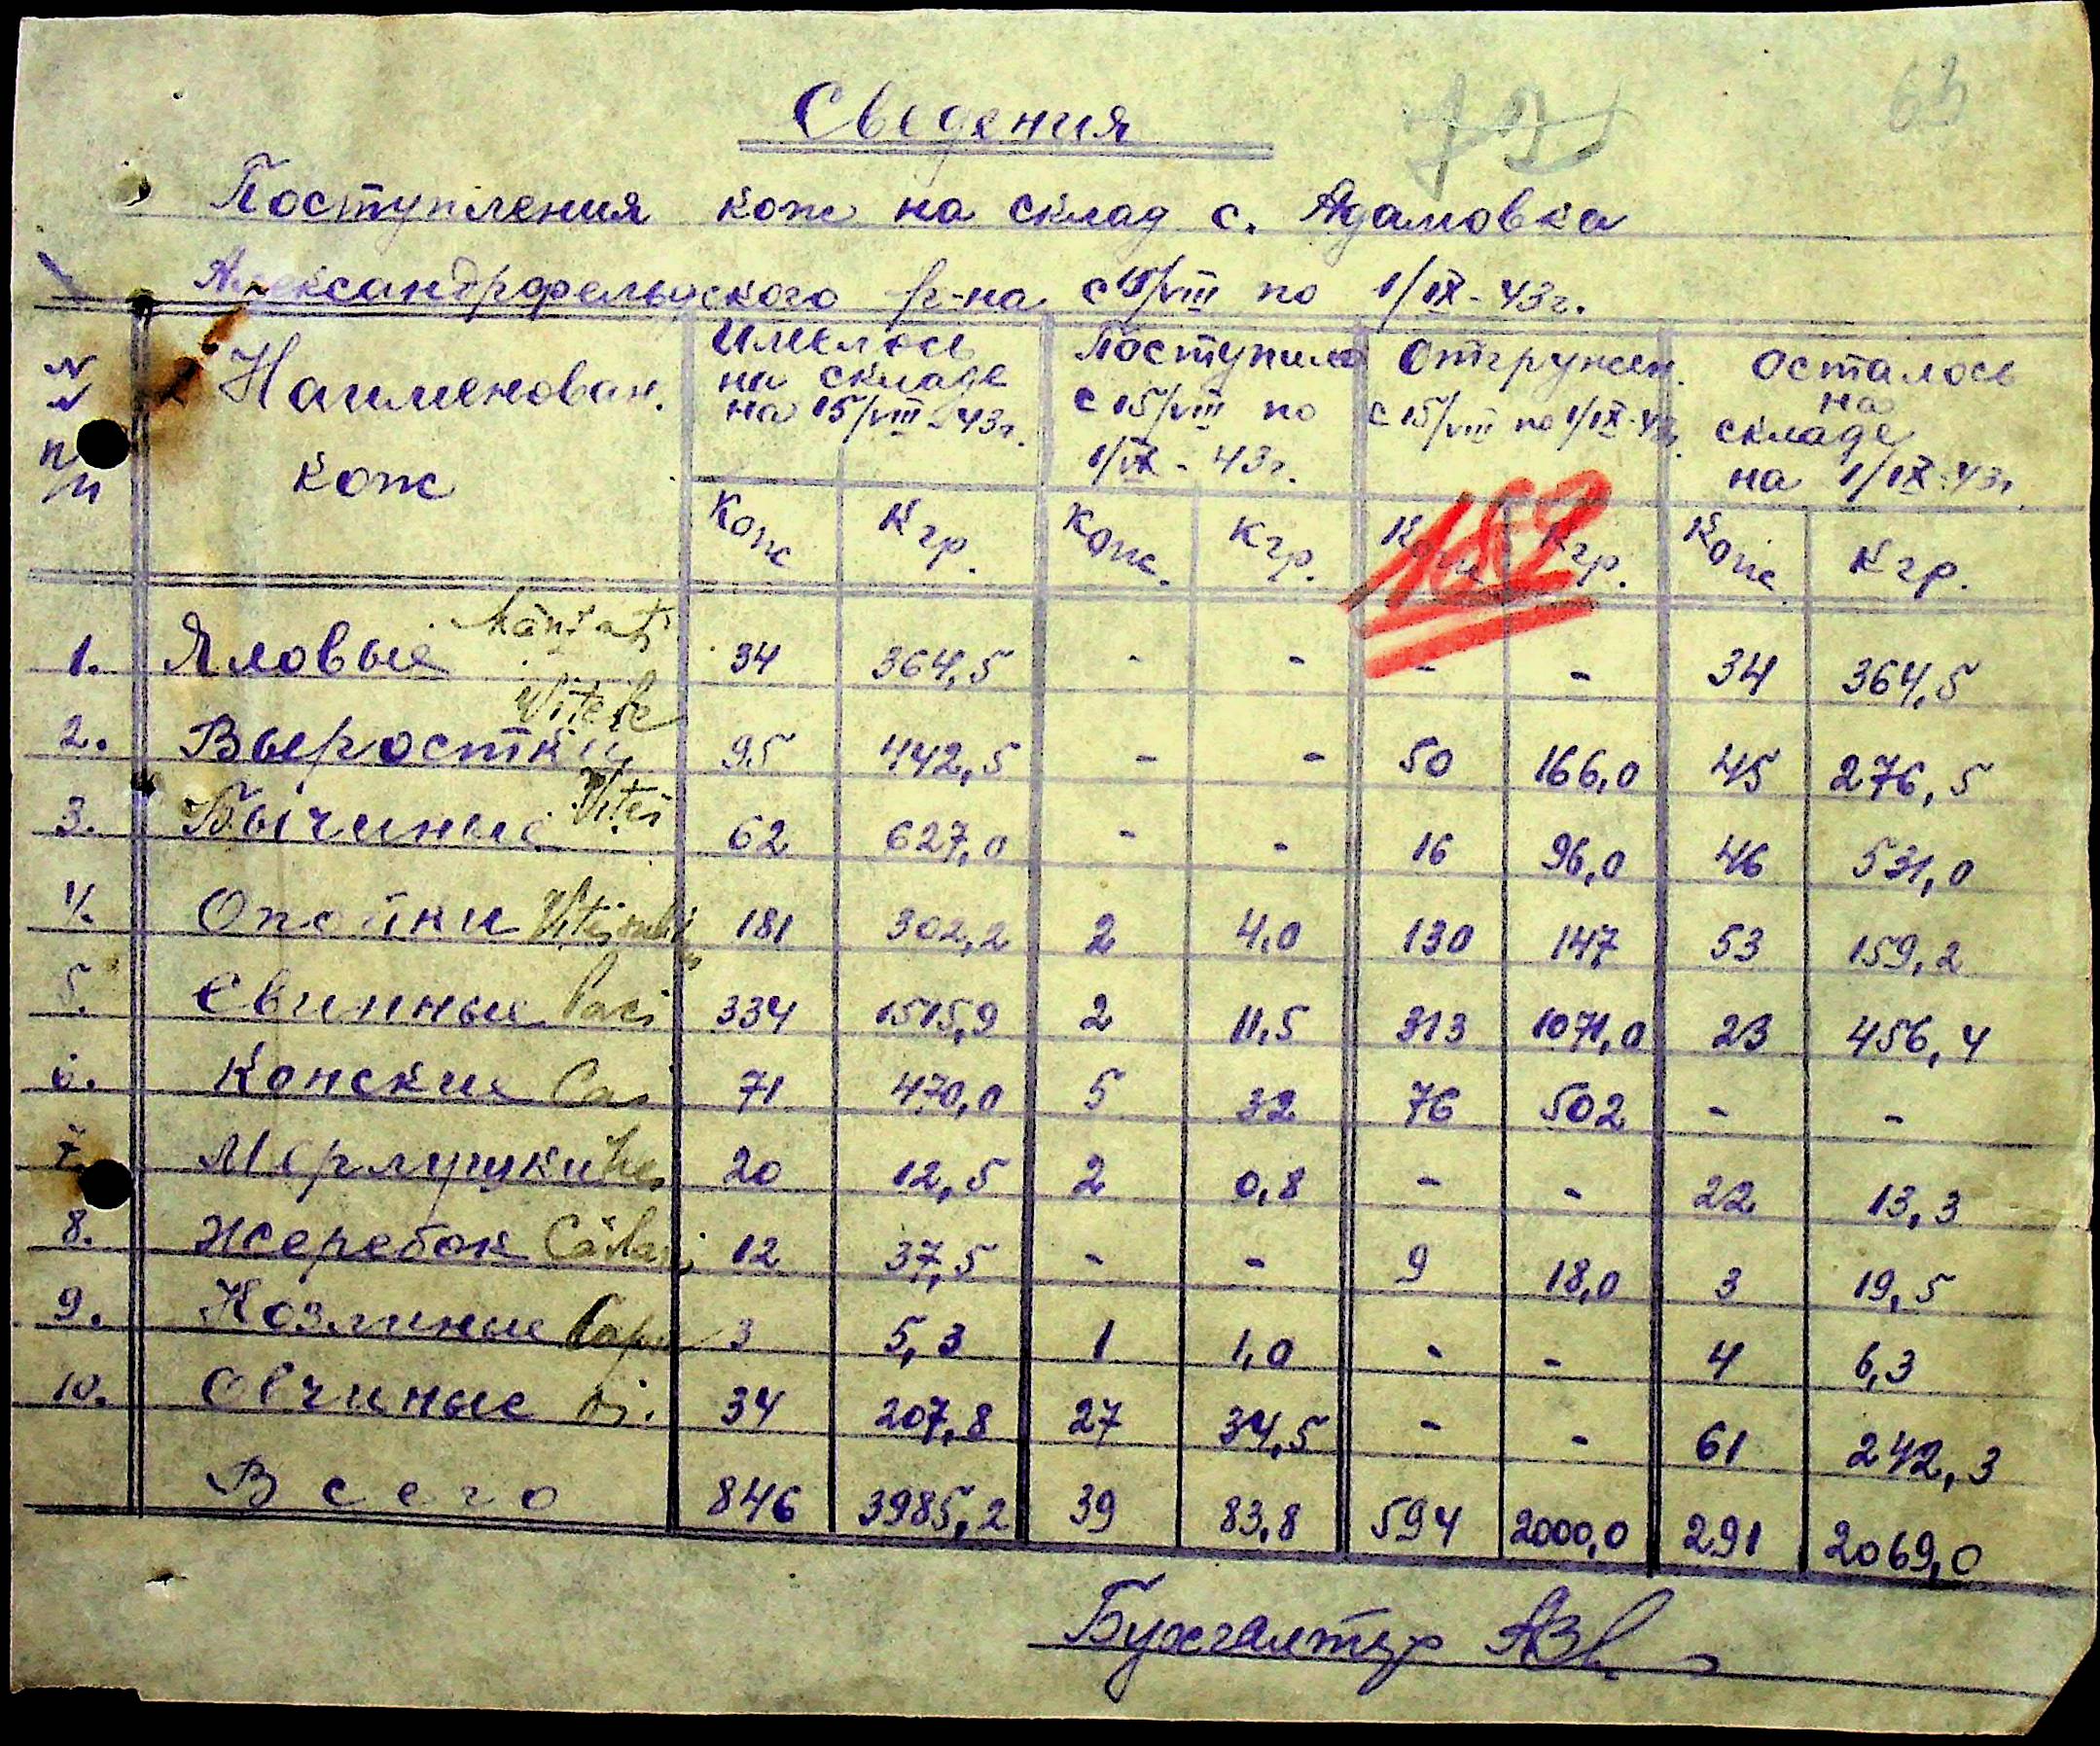 63
Сведения
Поступления кож на склад с. Адамовка
Александрфельдского р-на с 15/VIII по 1/IX-43г.
№№ п/п Наименован. кож Имелось на складе на 15/VIII-43г. Поступило с 15/VIII по 1/IX-43г. Отгружен. с 15/VIII по 1/IX-43г. Осталось на складе на 1/IX-43г.
Кож Кгр. Кож. Кгр. Кож Кгр. Кож. Кгр.
182
1. Яловые Mânzați 34 364,5 - - - - 34 364,5
2. Выростки Vițele 95 442,5 - - 50 166,0 45 276,5
3. Бычиные Viței 62 627,0 - - 16 96,0 46 531,0
4. Опойки Viței 181 302,2 2 4,0 130 147 53 159,2
5. Свинные Porci 334 1515,9 2 11,5 313 1071,0 23 456,4
6. Конские Cai 71 470,0 5 32 76 502 - -
7. Мерлушки 20 12,5 2 0,8 - - 22 13,3
8. Жеребок 12 37,5 - - 9 18,0 3 19,5
9. Козлиные Capre 3 5,3 1 1,0 - - 4 6,3
10. Овчиные Oi. 34 207,8 27 34,5 - - 61 242,3
Всего 846 3985,2 39 83,8 594 2000,0 291 2069,0
Бухгалтер